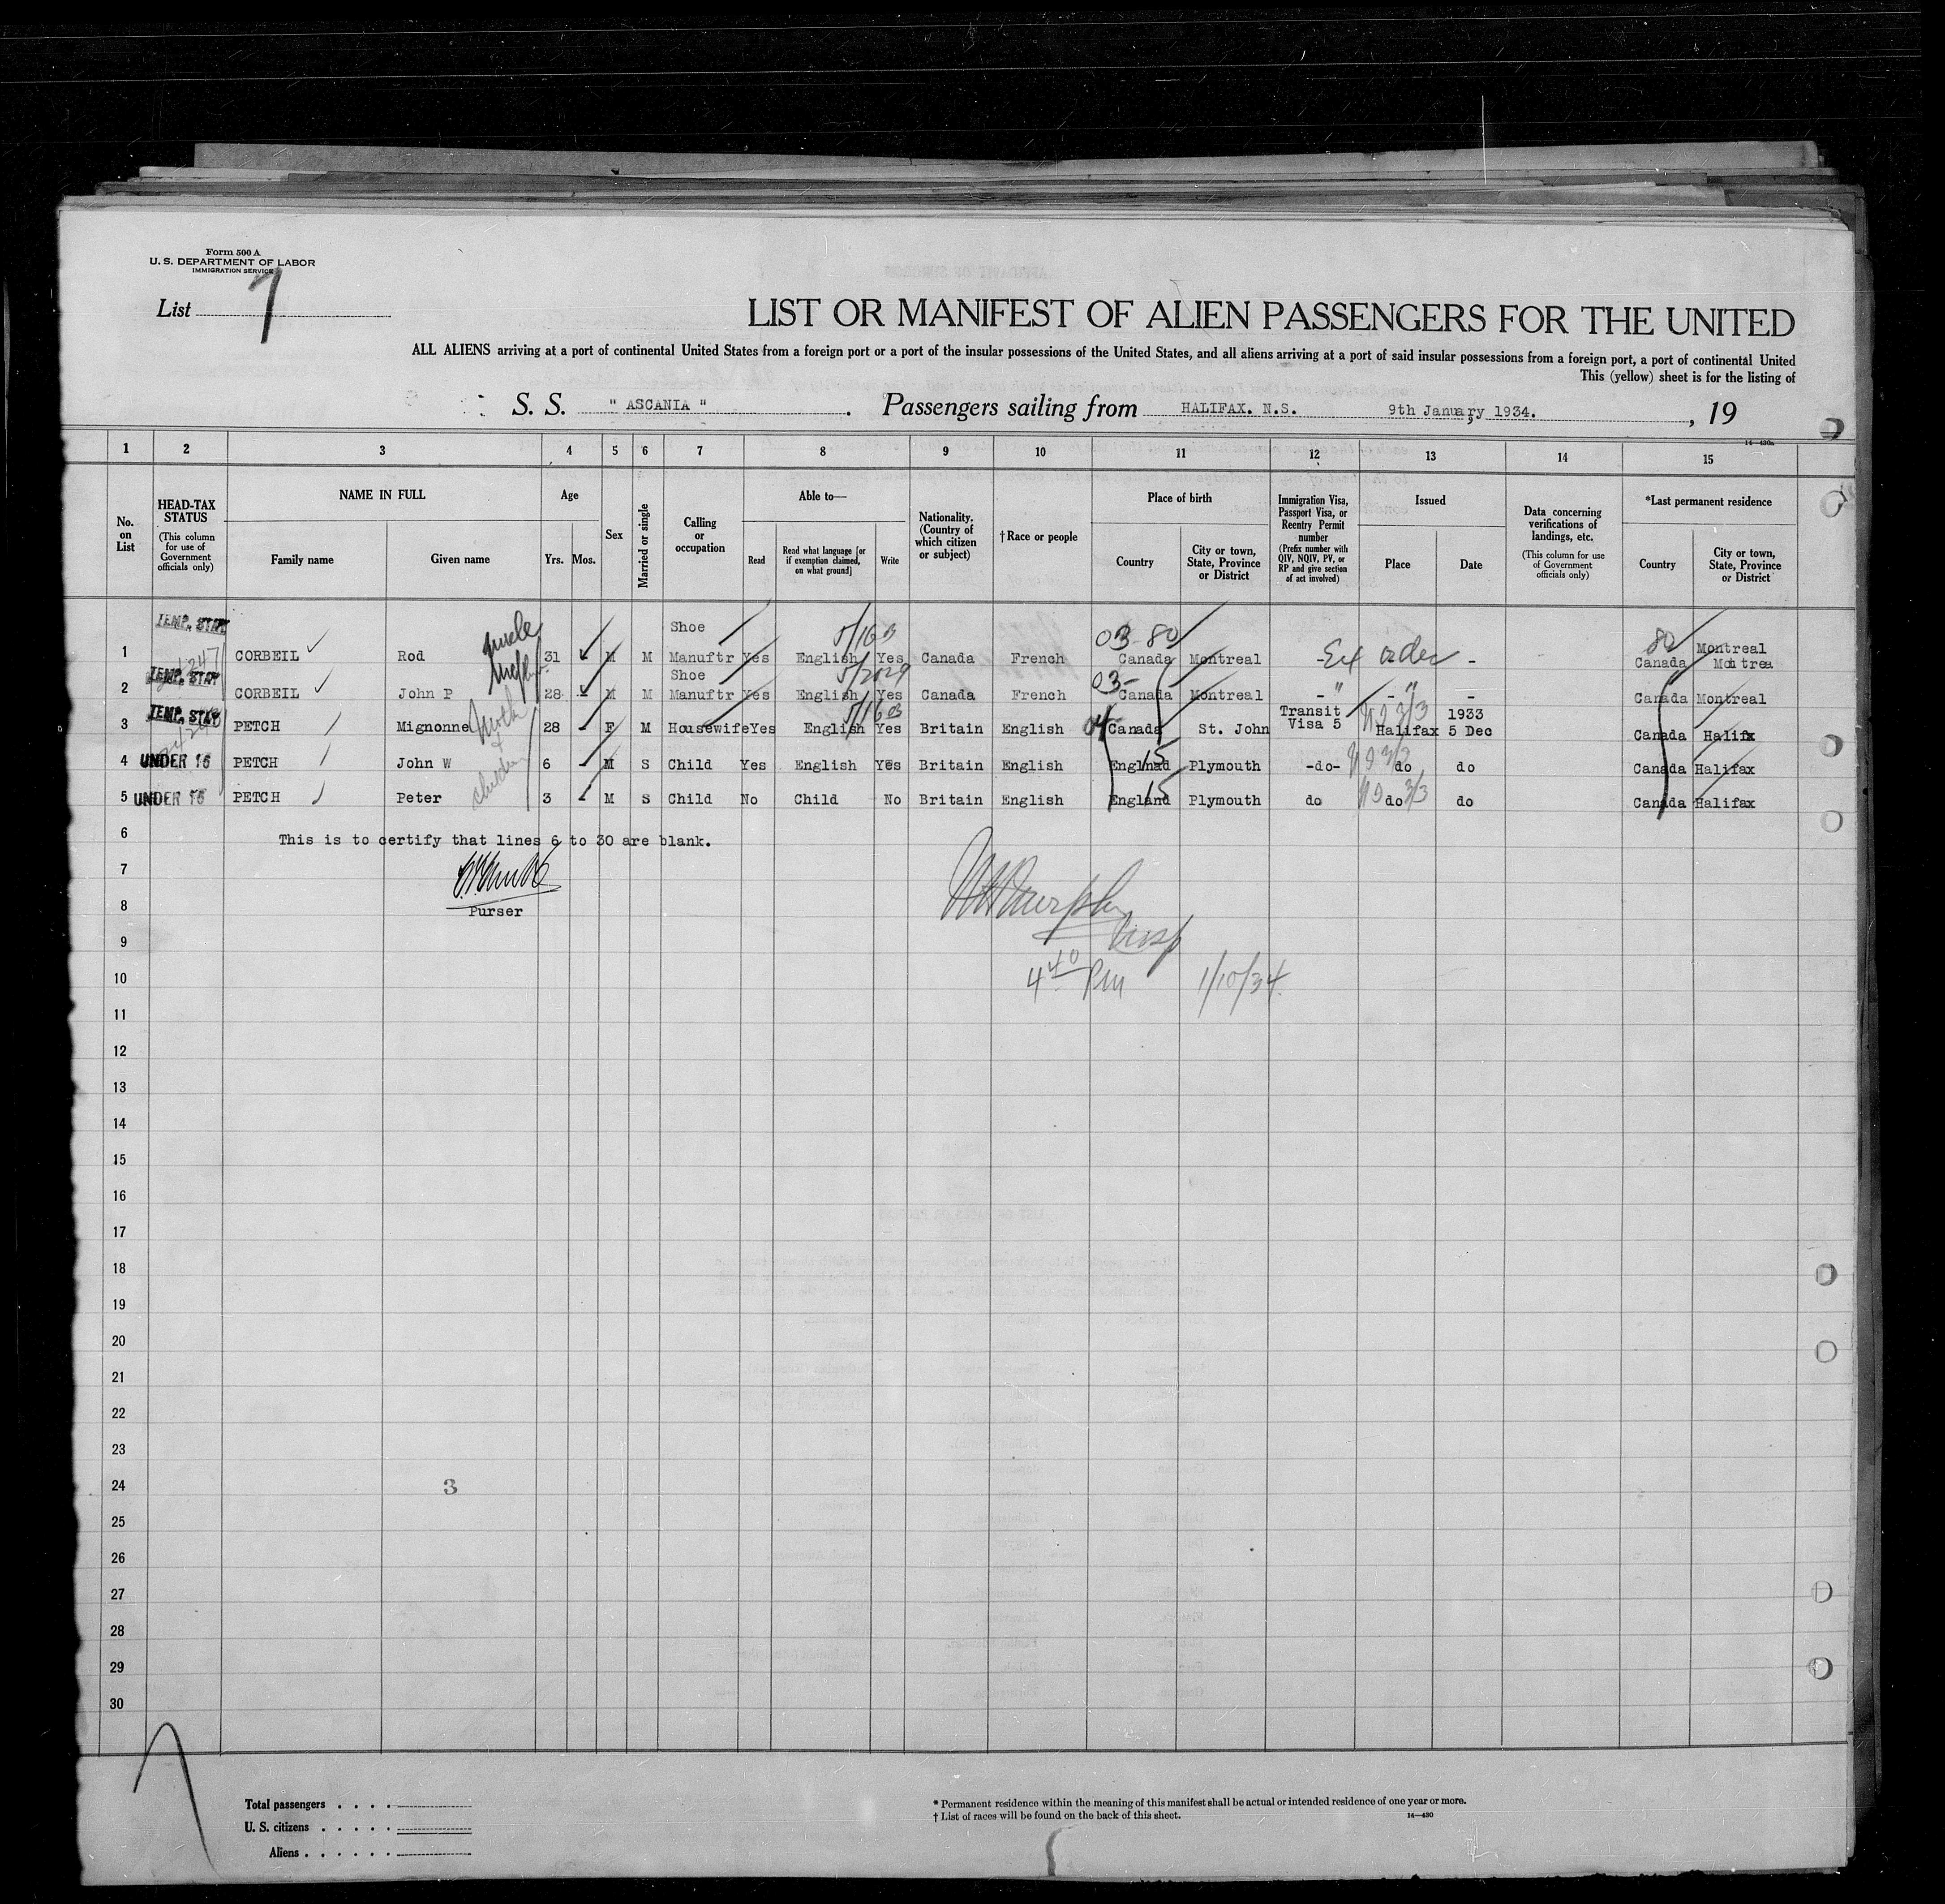 Form 500 A
U. S. DEPARTMENT OF LABOR
IMMIGRATION SERVICE
List 7
LIST OR MANIFEST OF ALIEN PASSENGERS FOR THE UNITED
ALL ALIENS arriving at a port of continental United States from a foreign port or a port of the insular possessions of the United States, and all aliens arriving at a port of said insular possessions from a foreign port, a port of continental United
This (yellow) sheet is for the listing of
S. S. " ASCANIA " . Passengers sailing from HALIFAX. N.S. 9th January, 1934. , 19
14—430a
1 2 3 4 5 6 7 8 9 10 11 12 13 14 15
No. on List
HEAD-TAX STATUS
(This column for use of Government officials only)
NAME IN FULL
Family name Given name
Age
Yrs. Mos.
Sex
Married or single
Calling or occupation
Able to—
Read
Read what language [or if exemption claimed, on what ground]
Write
Nationality. (Country of which citizen or subject)
†Race or people
Place of birth
Country
City or town, State, Province or District
Immigration Visa, Passport Visa, or Reentry Permit number
(Prefix number with QIV, NQIV, PV, or RP and give section of act involved)
Issued
Place Date
Data concerning verifications of landings, etc.
(This column for use of Government officials only)
*Last permanent residence
Country
City or town, State, Province or District
TEMP. STAY Shoe 5/16 03-80 80 Montreal
1 CORBEIL Rod uncle 31 M M Manuftr Yes English Yes Canada French Canada Montreal - Ex order - Canada Montrea
TEMP. STAY Shoe 5/2029 03-
2 CORBEIL John P 28 M M Manuftr Yes English Yes Canada French Canada Montreal - " - " - Canada Montreal
TEMP. STAY Transit 3/3 1933
3 PETCH Mignonne Moth 28 F M Housewife Yes English Yes Britain English 04 Canada St. John Visa 5 Halifax 5 Dec Canada Halifx
4 UNDER 16 PETCH John W children 6 M S Child Yes English Yes Britain English Englnad 15 Plymouth -do- do do Canada Halifax
5 UNDER 16 PETCH Peter 3 M S Child No Child No Britain English England 15 Plymouth do do 3/3 do Canada Halifax
6 This is to certify that lines 6 to 30 are blank.
7
8 Purser
9 Insp
10 4 40 Pm 1/10/34.
11
12
13
14
15
16
17
18
19
20
21
22
23
24 3
25
26
27
28
29
30
Total passengers . . . .
U. S. citizens . . . . .
Aliens . . . . . .
* Permanent residence within the meaning of this manifest shall be actual or intended residence of one year or more.
† List of races will be found on the back of this sheet. 14—430